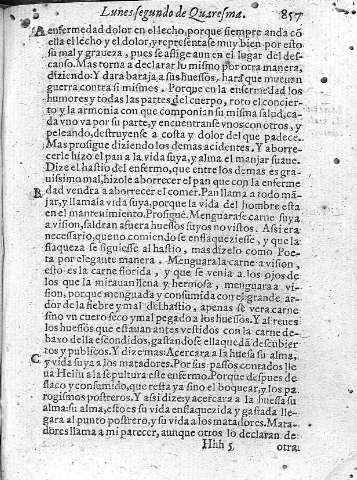 Lunes segundo de Quaresma. 857
A enfermedad dolor en el lecho, porque siempre anda cõ
ella el lecho y el dolor, y representase muy bien por esto
su mal y graveza, pues se aflige aun en el lugar del des-
canso. Mas torna a declarar lo mismo por otra manera,
diziendo: Y dara baraja, a sus huessos, hara que mueuan
guerra contra si mismos. Porque en la enfermedad los
humores y todas las partes del cuerpo, roto el concier-
to y la armonia con que componian su misma salud, ca-
da vno va por su parte, y encuentranse vnos con otros, y
peleando, destruyense a costa y dolor del que padece.
Mas prosigue diziendo los demas accidentes. Y aborre-
cerle hizo el pan a la vida suya, y alma el manjar suaue.
Dize el hastio del enfermo, que entre los demas es gra-
uissimo mal, hizole aborrecer el pan que con la enferme
B dad vendra a aborrecer el comer. Pan llama a todo mã-
jar, y llamaia vida suya, porque la vida del hombre esta
en el mantenimiento. Prosigue. Menguarase carne suya
a vision, saldran afuera huessos suyos no vistos. Assi era
necessario, que no comiendo se enflaqueziesse, y que la
flaqueza se siguiesse al hastio, mas dizelo como Poe-
ta por elegante manera. Menguara la carne a vision,
esto es la carne florida, y que se venia a los ojos de
los que la mirauan llena y hermosa, menguara a vi-
sion, porque menguada y consumida con el grande ar-
dor de la fiebre y mal del hastio, apenas se vera carne
sino vn cuero seco y mal pegado a los huessos. Y al reues
los huessos que estauan antes vestidos con la carne de-
baxo della escondidos, gastandose ella queda descubier
tos y publicos. Y dize mas: Acercara a la huesa su alma,
C y vida suya a los matadores. Por sus passos contados lle
na Heliu a la sepultura este enfermo. Porque despues de
flaco y consumido, que resta ya sino el boquear, y los pa-
rogismos postreros. Y assi dize: y acercara a la huessa su
alma: su alma, esto es su vida enflaquezida y gastada lle-
gara al punto postrero, y su vida a los matadores. Mata-
dores llama a mi parecer, aunque otros lo declaran de
Hhh 5 otra